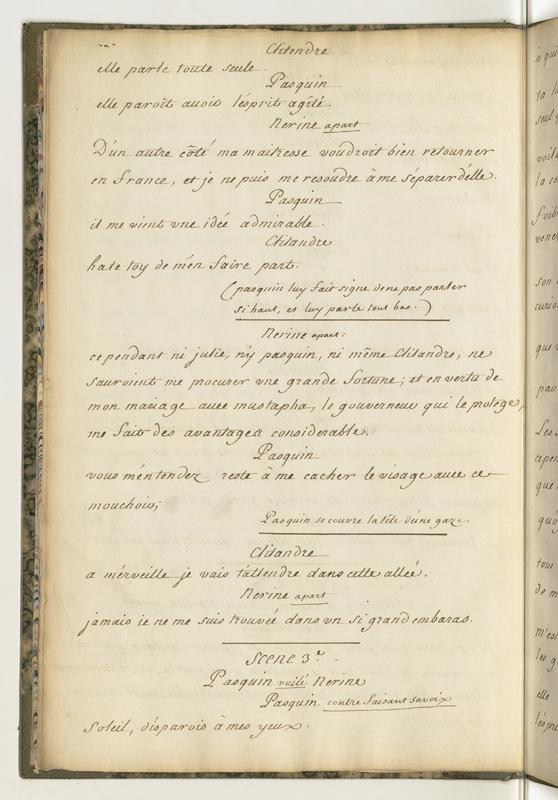 Clitendre
elle parle toute seule.
Pasquin
elle paroît avoir l'ésprit agité.
Nerine apart
D'un autre côté ma maitresse voudroit bien retourner
en france, et je ne puis me resoudre à me séparer d'élle.
Pasquin
il me vient vne idée admirable.
Clitandre
hate toy de m'en faire part.
(pasquin luy fait signe de ne pas parler
si haut, et luy parle tout bas.)
Nerine apart:
cependant ni julie, n'y pasquin, ni même Clitandre, ne
sauroient me procurer vne grande fortune; et en vertu de
mon mariage avec mustapha, le gouverneur qui le protege,
me fait des avantages considerable.
Pasquin
vous m'éntendez reste à me cacher le visage avec ce
mouchoir;
Pasquin se couvre la tête d'une gaze.
Clitandre
a mérveille je vais t'attendre dans cette alleé.
Nerine apart
jamais ie ne me suis trouvée dans vn si grand embaras.
Scene 3e.
Pasquin voilé Nerine
Pasquin contre faisant sa voix
Soleil, disparois à mes yeux.
à qui
ta
seul
voila
la
foible
venez
son
curio
que
par
Les
cepen
que
qu'o
tous
de m
m'es
les g
elle
l'ésprit